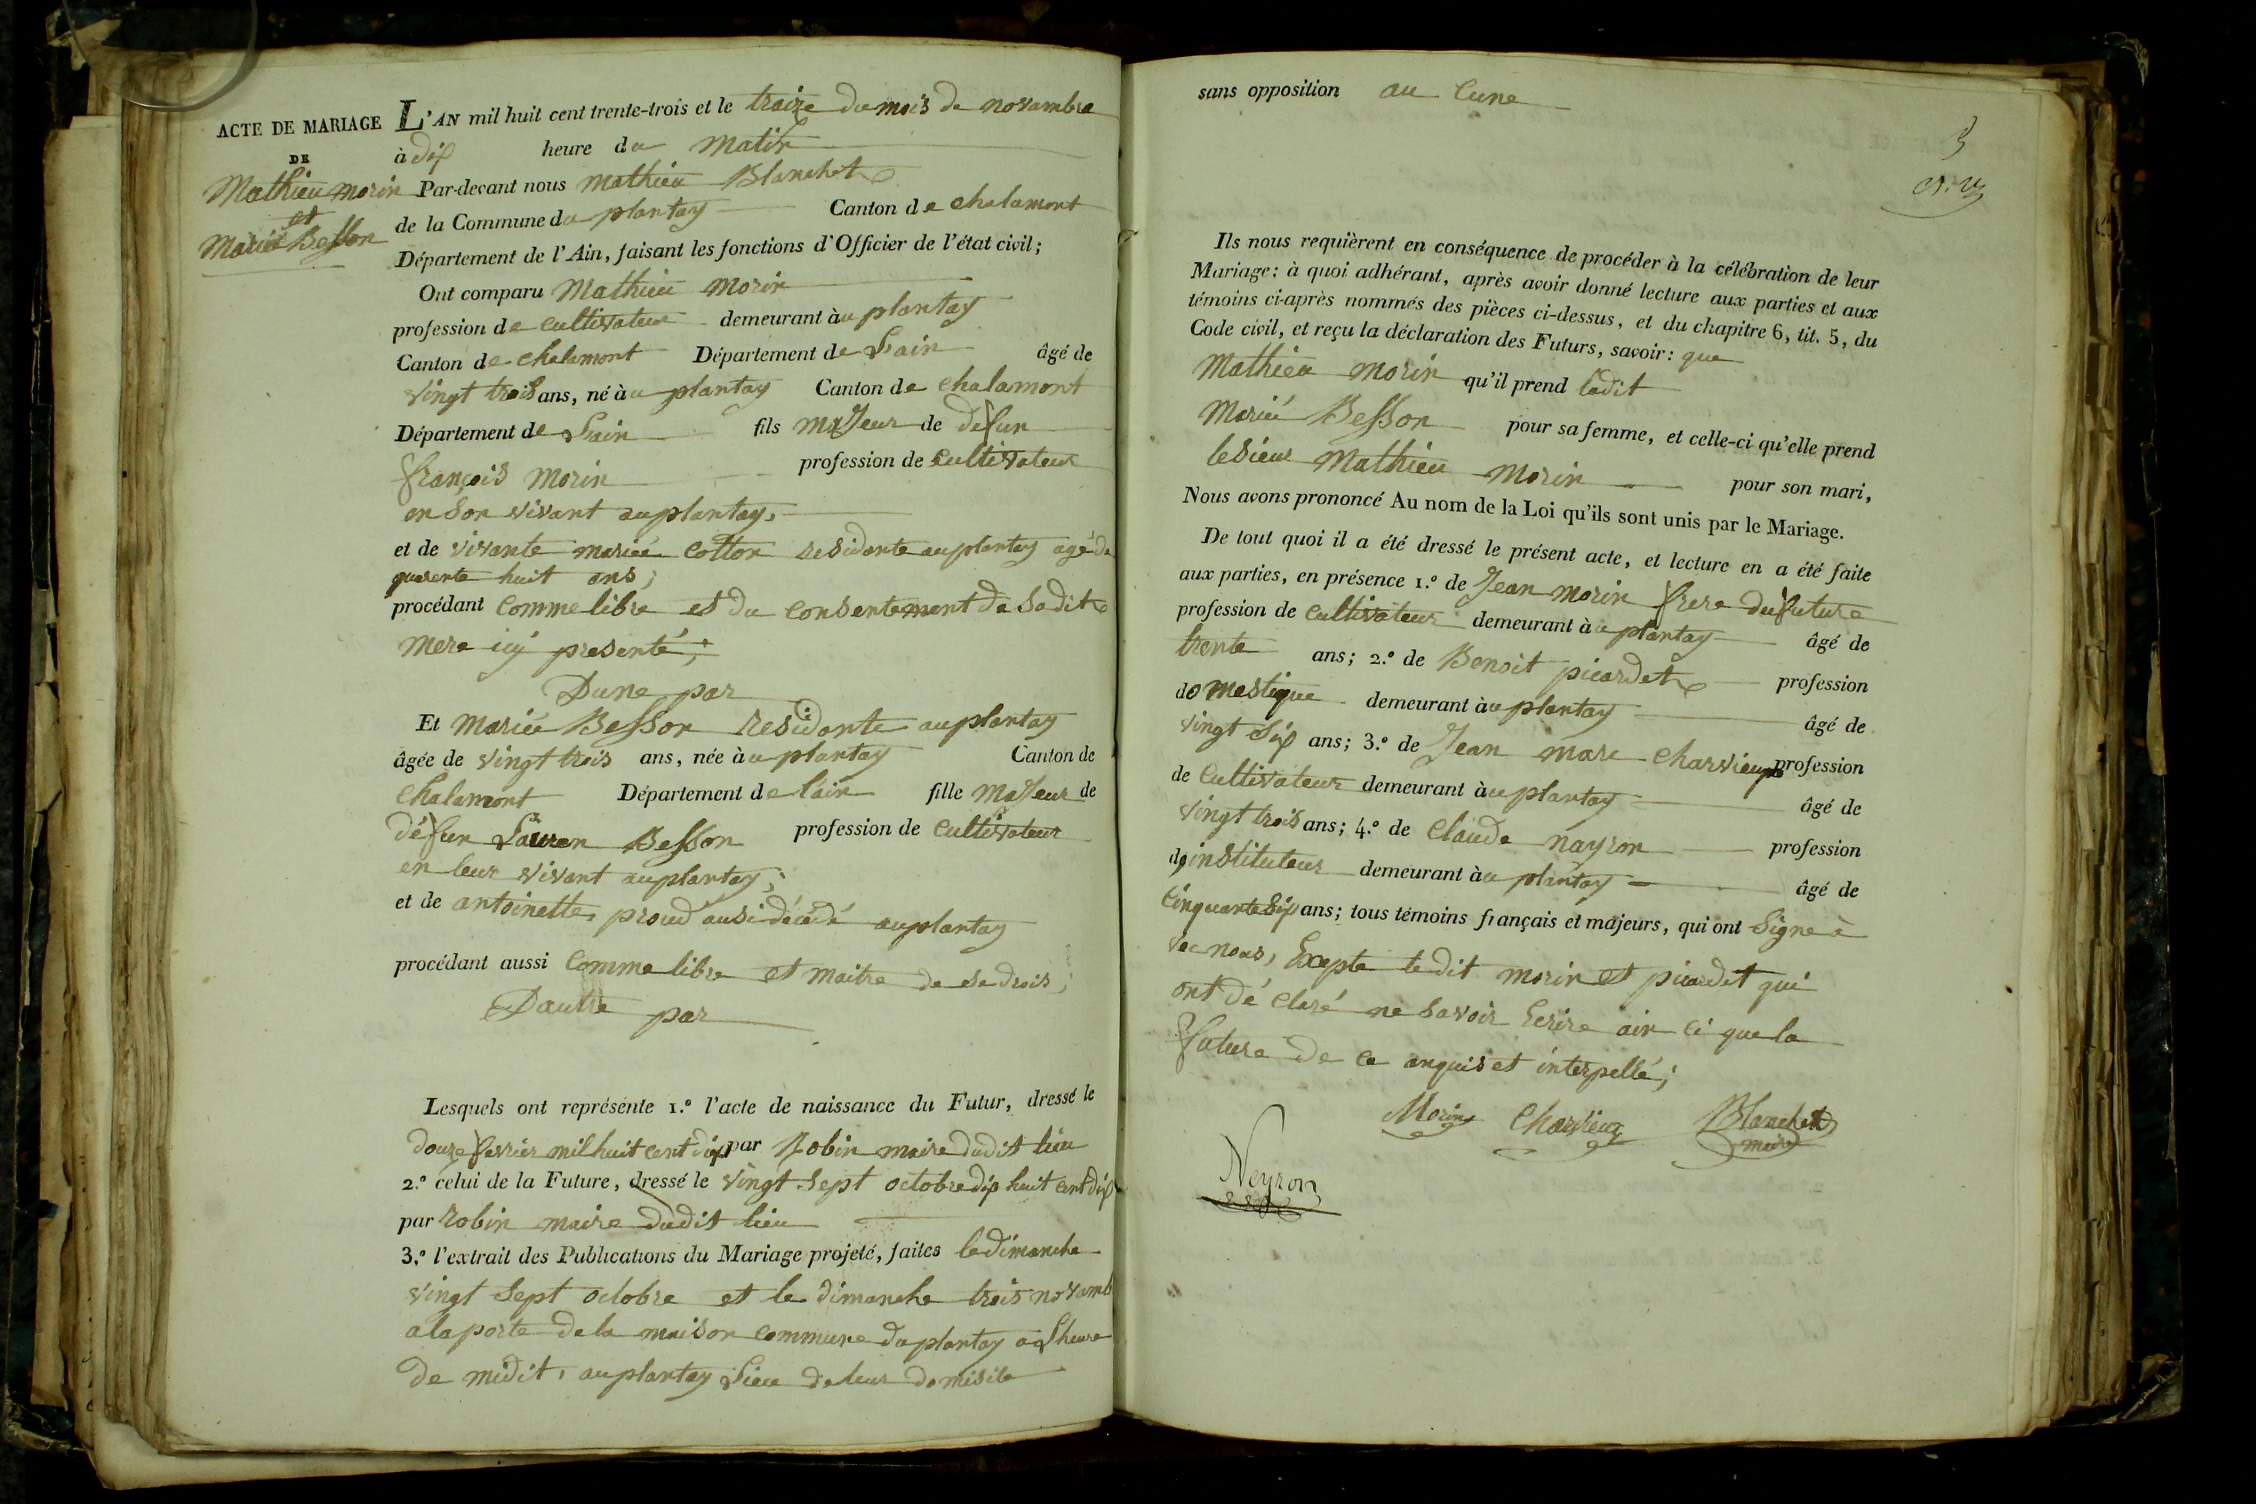 ACTE DE MARIAGE
DE
Mathieu morin
et
Marié Besson
L'AN mil huit cent trente-trois et le traize du mois de novambre
à dix heure du Matin
Par-devant nous Mathieu Blanchet
de la Commune du plantay Canton de chalamont
Département de l'Ain, faisant les fonctions d'Officier de l'état civil;
Ont comparu Mathieu Morin
profession de cultivateur demeurant àu plantay
Canton de chalamont Département de Lain âgé de
vingt trois ans, né àu plantay Canton de chalamont
Département de Lain fils majeur de défun
françois Morin profession de cultivateur
en son vivant auplantay,
et de vivante mariée Cotton residante auplantay agé de
quarente huit ans;
procédant Comme libre et du consentement de sadite
Mere icy presenté;
Dune par
Et Mariée Besson residante auplantay
âgée de vingt trois ans, née àu plantay Canton de
Chalamont Département de lain fille majeur de
défun Lauren Besson profession de cultivateur
en leur vivant auplantay;
et de antoinette proud ausi décédé auplantay
procédant aussi Comme libre et maitre de se drois;
Dautre par
Lesquels ont représenté 1.º l'acte de naissance du Futur, dressé le
douze fevrier mil huit cent dix par Robin maire dudit lieu
2.º celui de la Future, dressé le vingt sept octobre dix huit cent dix
par robin maire dudit lieu
3.º l'extrait des Publications du Mariage projeté, faites le dimanche
vingt sept octobre et le dimanche trois novamb
a la porte de la maison commune du plantay a Lheure
de midit, auplantay Lieu de leur domisile
sans opposition au Cune
Ils nous requièrent en conséquence de procéder à la célébration de leur
Mariage: à quoi adhérant, après avoir donné lecture aux parties et aux
témoins ci-après nommés des pièces ci-dessus, et du chapitre 6, tit. 5, du
Code civil, et reçu la déclaration des Futurs, savoir: que
Mathieu morin qu'il prend ladit
Marié Besson pour sa femme, et celle-ci qu'elle prend
lesieur Mathieu Morin pour son mari,
Nous avons prononcé Au nom de la Loi qu'ils sont unis par le Mariage.
De tout quoi il a été dressé le présent acte, et lecture en a été faite
aux parties, en présence 1.º de Jean morin frere du future
profession de cultivateur demeurant àu plantay âgé de
trente ans; 2.º de Benoit picardet profession
do mestique demeurant àu plantay âgé de
vingt six ans; 3.º de Jean marc Charvieux profession
de Cultivateur demeurant àu plantay âgé de
vingt trois ans; 4.º de Claude nayron profession
d'instituteur demeurant àu plantay âgé de
Cinquante six ans; tous témoins français et majeurs, qui ont Signe à
vec nous, Excepte ledit morin et picardet qui
ont dé claré ne savoir Ecrire ain ci que la
future de ce anquis et interpellé;
Morin Charvieux Blanchet
maire
Neyron